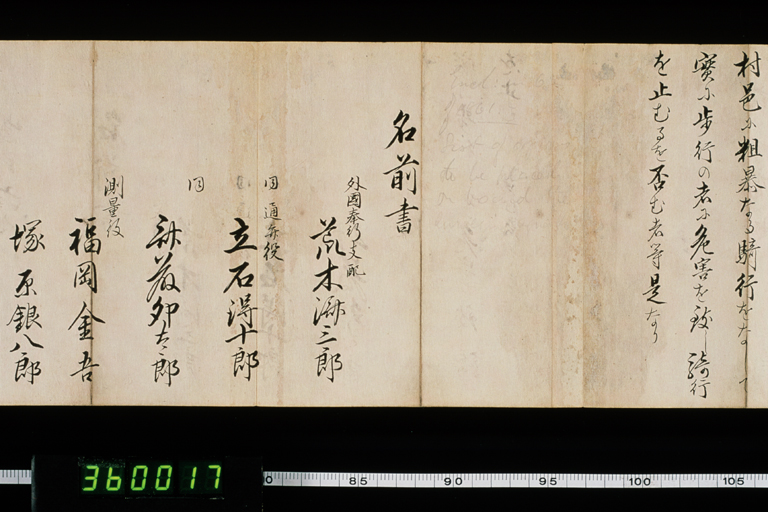 村邑ニ粗暴なる騎行をなして
實ニ歩行の者ニ危害を致し騎行
を止むるを否む者等是なり
名前書
外國奉行支配
荒木済三郎
同 通弁役
立石得十郎
同
卯太郎
測量役
福岡金吾
塚原銀八郎
360017
85
90
95
100
105